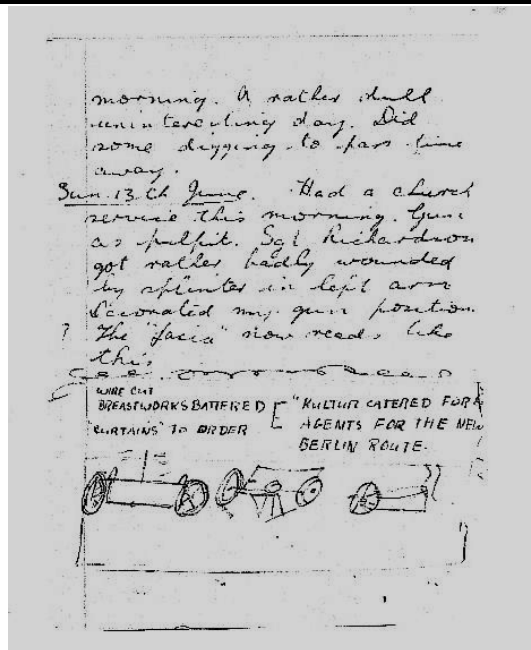 morning. A rather dull
uninteresting day. Did
some digging to pass time
away.
Sun. 13th June. Had a church
service this morning. Gun
as pulpit. Sgt Richardson
got rather badly wounded
by splinter in left arm
Decorated my gun position
? The "facia" now reads like
this
WIRE CUT
BREASTWORKS BATTERED
"CURTAINS" TO ORDER
"KULTUR CATERED FOR
AGENTS FOR THE NEW
BERLIN ROUTE.